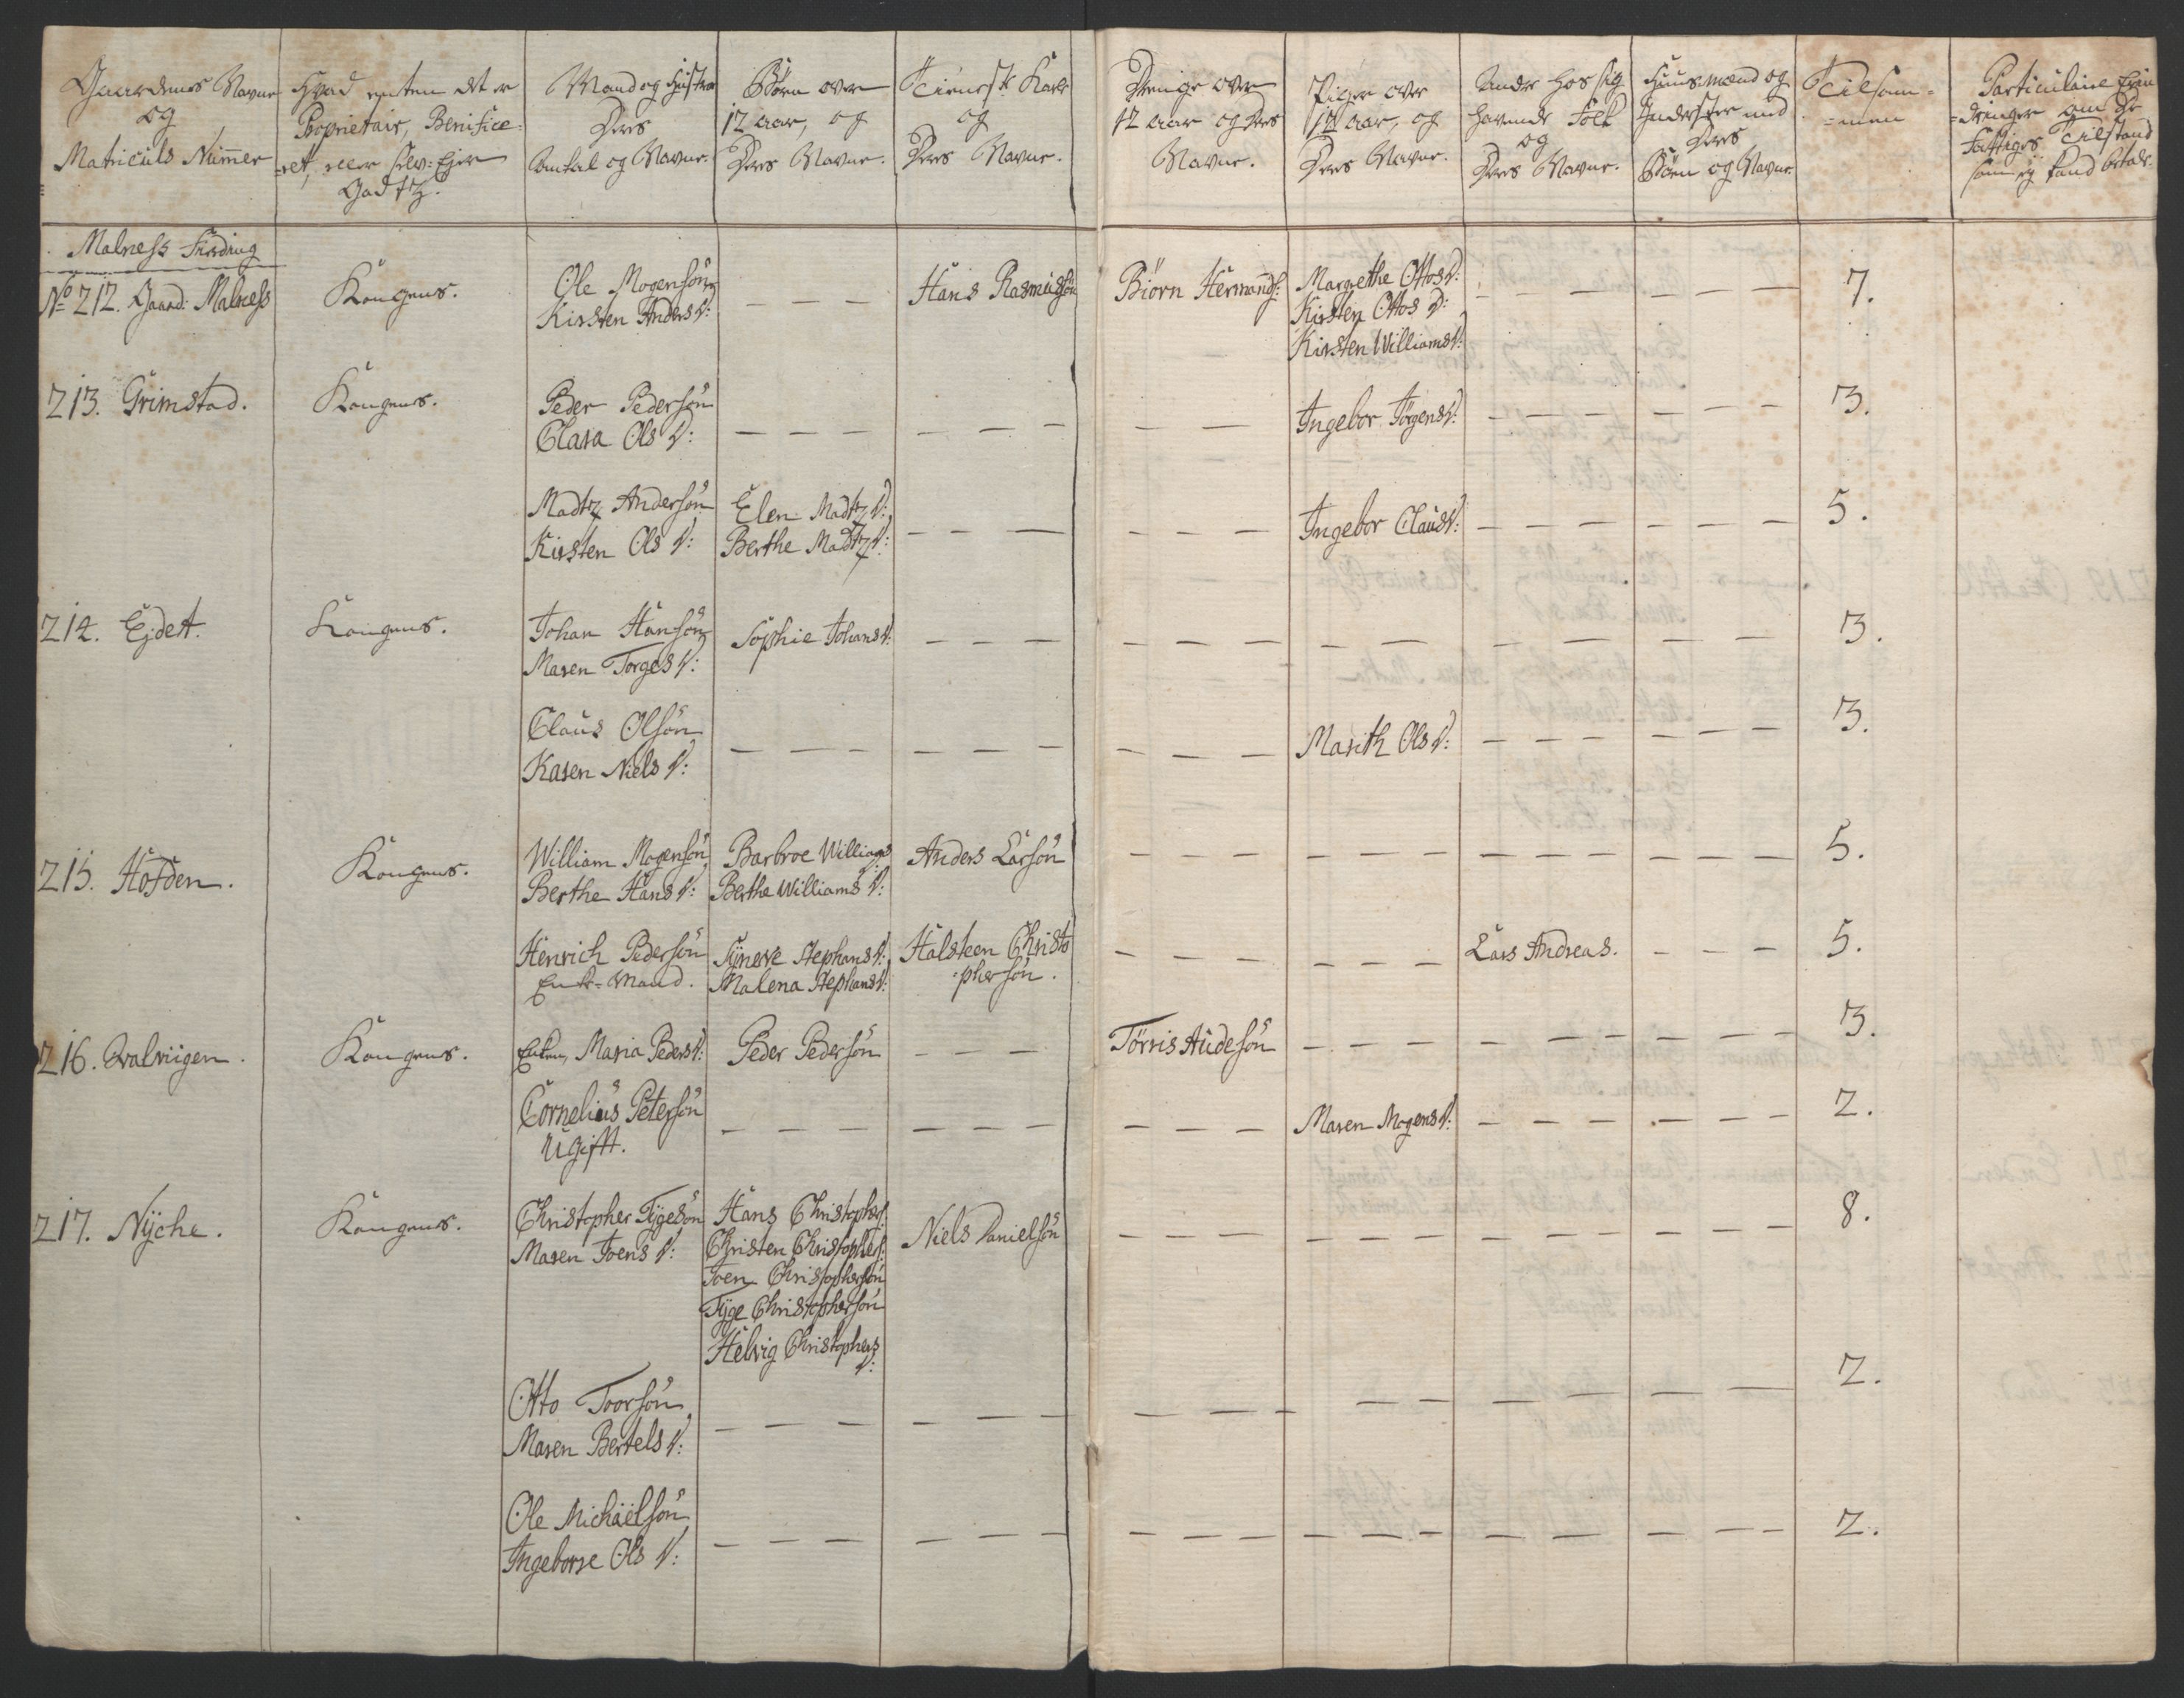 Gaardenes Navne
og
Matriculs Nummer
Hvad enten det er
Proprietair, Benifice-
-ret, eller selv-Ejer
Godtz.
Mand og Hustrue
Deres
Antal og Navne.
Børn over
12 aar, og
Deres Navne.
Tieneste Karle
og
Deres Navne.
Drenge over
12 aar og deres
Navne.
Piger over
12 aar, og
Deres Navne.
Andre hos sig
havende Folk
og
Deres Navne.
Huusmænd og
Inderster med
Deres
Børn og Navne.
Tilsam-
-men
Particulaire Erin
-dringer om de
Fattiges Tilstand
som ej kand betale.
Malness Fierding
No 212. Gaard: Malness
Kongens.
Ole Mogensøn
Kirsten Anders D:
— — —
Hans Rasmusøn
Biørn Hermands:
Margrethe Ottos D:
Kirsten Ottos D:
Kirsten Williams D:
— — — — — —
7.
213. Grimstad.
Kongens.
Peder Pedersøn
Clara Ols D:
— — — — — —
— —
Ingebor Jørgens D:
— — — — — —
3.
Madtz Andersøn
Kirsten Ols D:
Elen Madtz D:
Berthe Madtz D:
— — —
— — —
Ingebor Claus D:
— — — — — —
5.
214. Ejdet.
Kongens.
Johan Hansøn
Maren Torges D:
Sophie Johans D:
— — —
— — — — — — — — —
3.
Claus Olsøn
Karen Niels D:
— — — — — —
— — —
Marith Ols D:
— — — — — —
3.
215. Hofden.
Kongens.
William Mogensøn
Berthe Hans D:
Barbroe Williams
D:
Berthe Williams D:
Anders Larsøn
— — — — — — — — — — — —
5.
Henrich Pedersøn
Enke-Mand.
Synneve Stephans D:
Malena Stephans D:
Halsteen Christo
-phersøn.
— — — — — —
Lars Andreas.
— — —
5.
216. Qvalviigen.
Kongens.
Enken, Maria Peders D:
Peder Pedersøn
— — —
Tørris Audesøn
— — — — — — — — —
3.
Cornelius Petersøn
Ugift.
— — — — — —
— — —
Maren Mogens D:
— — — — — —
2.
217. Nyche.
Kongens.
Christopher Tygesøn
Maren Joens D:
Hans Christophers:
Christen Christophers:
Joen Christophersøn
Tyge Christophersøn
Helvig Christophers
D:
Niels Danielsøn
— — — — — — — — — — — —
8.
Otto Toorsøn
Maren Bertels D:
— — — — — —
— — — — — — — — —
2.
Ole Michaëlsøn
Ingeborre Ols D:
— — — — — —
— — — — — — — — — — — —
2.